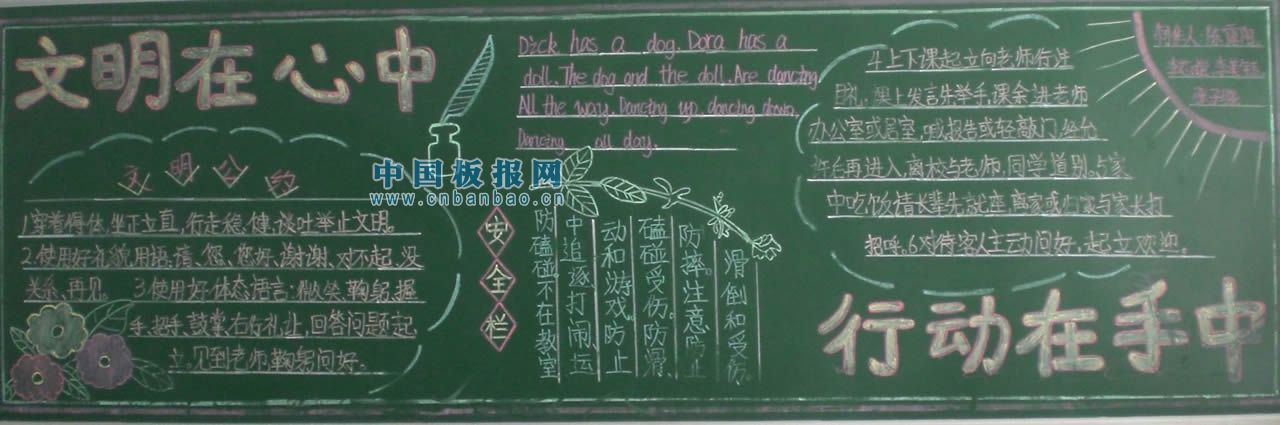 文明在心中
文明公约
1穿着得体,坐正立直,行走稳、健,谈吐举止文明。
2使用好礼貌用语:请、您、您好、谢谢、对不起、没
关系、再见。 3使用好体态语言:微笑、鞠躬、握
手、招手、鼓掌、右行礼让,回答问题起
立。见到老师鞠躬问好。
Dick has a dog. Dora has a
doll. The dog and the doll. Are dancing
All the way. Dancing up, dancing down,
Dancing all day.
中国板报网
www.cnbanbao.cn
安全栏
防磕碰不在教室
中追逐打闹、运
动和游戏。防止
磕碰受伤。防滑、
防摔。注意防止
滑倒和受伤。
4上下课起立向老师行注
目礼,课上发言先举手,课余进老师
办公室或居室,喊报告或轻敲门,经允
许后再进入,离校与老师,同学道别。5家
中吃饭请长辈先就座 离家或归家与家长打
招呼。6对待客人主动问好,起立欢迎。
制作人:陈
行动在手中